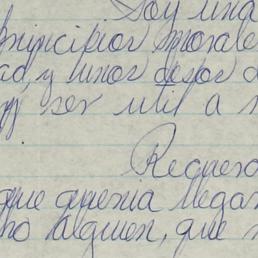 Soy una
principios morale
ad, y unos deseos d
ser util a
Recuerd
que queria llegar
no alguien, que